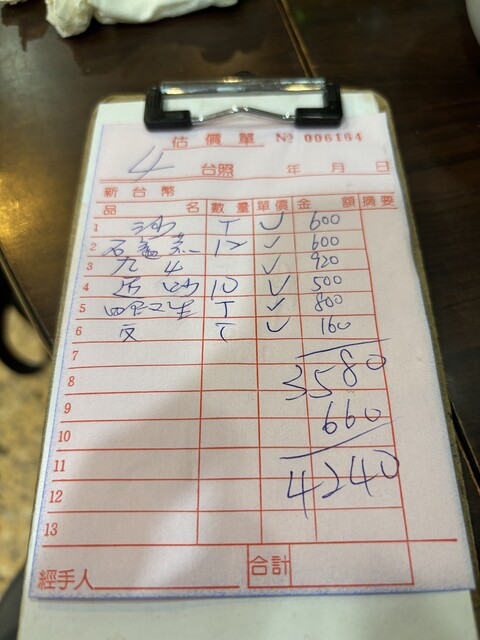 估價單 № 006164
4 台照 年 月 日
新台幣
品名 數量 單價 金額 摘要
1 T ✓ 600
2 12 ✓ 600
3 九 4 ✓ 920
4 10 ✓ 500
5 T ✓ 800
6 ✓ 160
7 3580
8
9 660
10
11 4240
12
13
經手人 合計